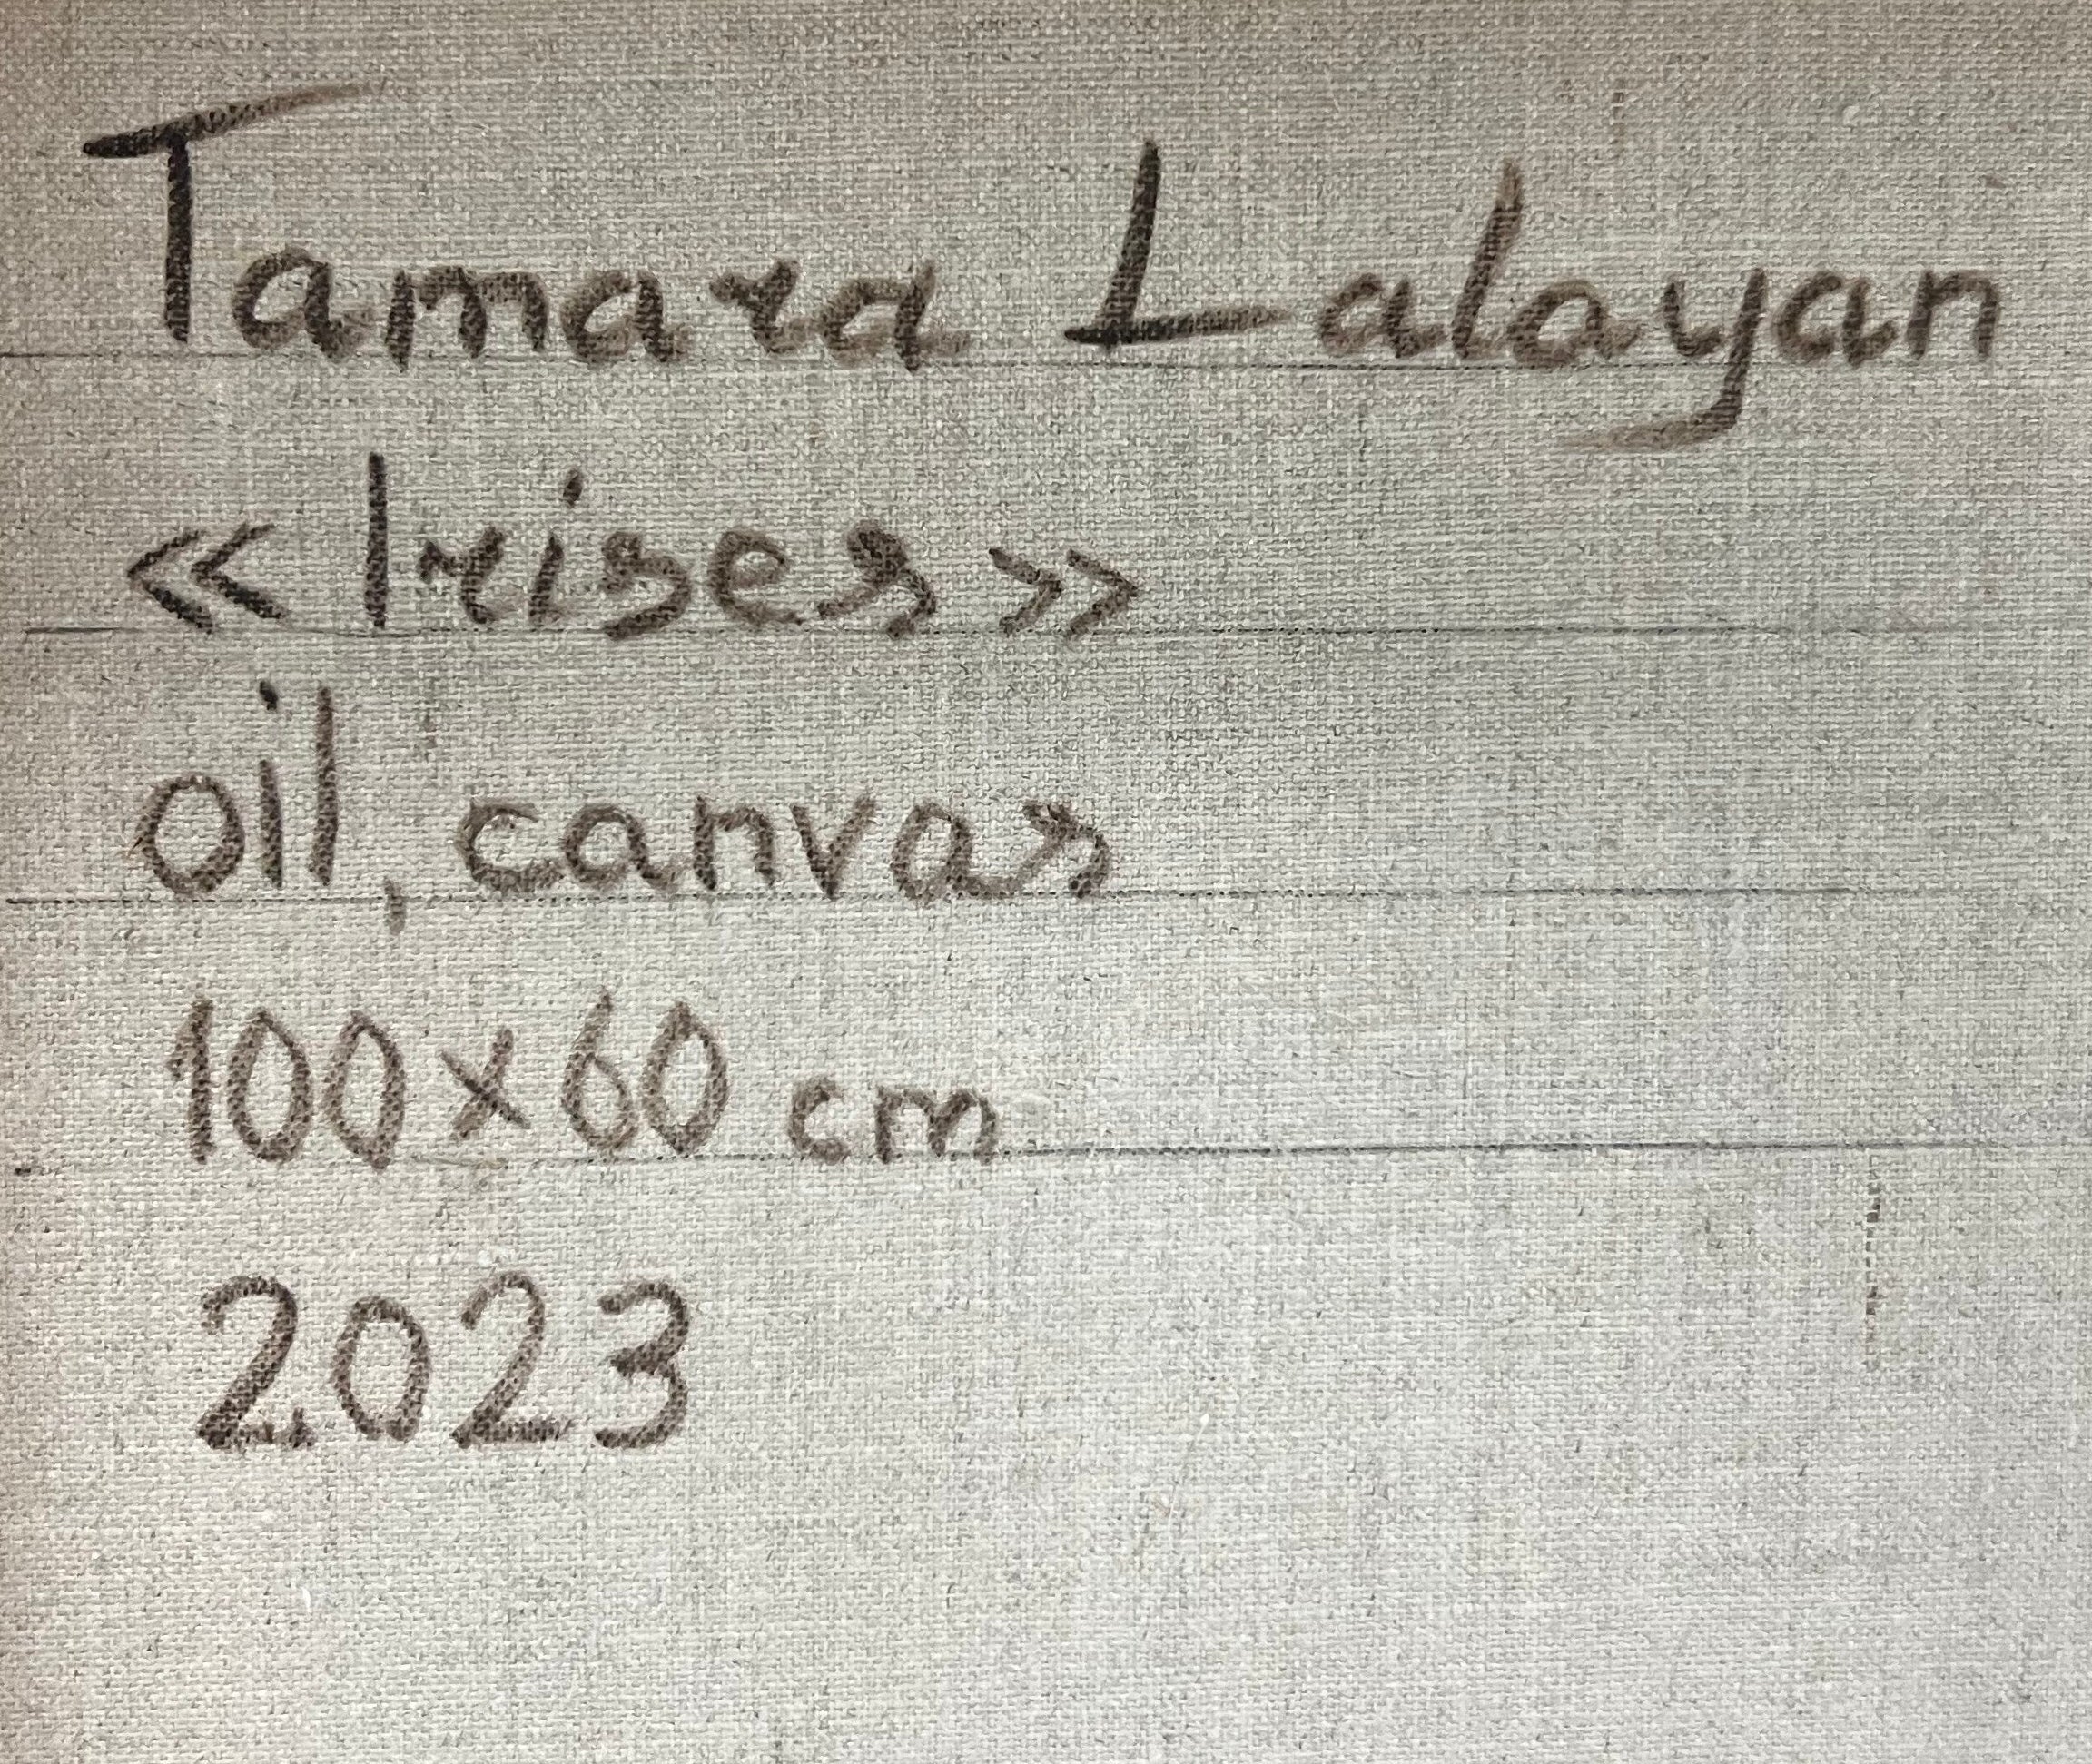 Tamara Lalayan
« Irises »
oil, canvas
100×60 cm
2023